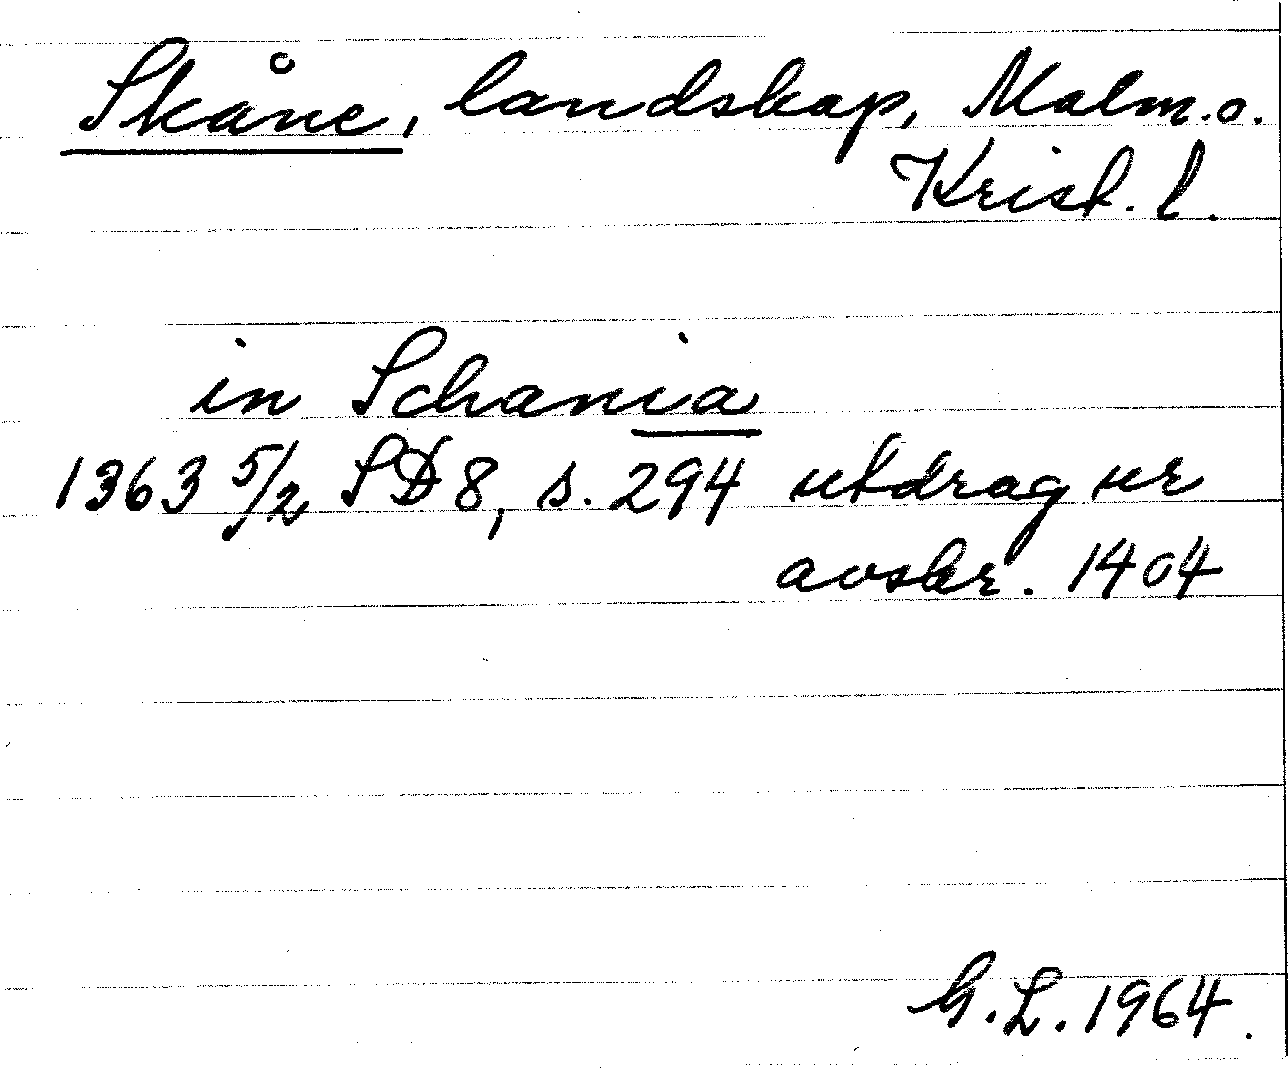 Skåne, landskap, Malm. o.
Krist. l.
in Schania
1363 5/2 SD 8, s. 294 utdrag ur
avskr. 1404
G. L. 1964.